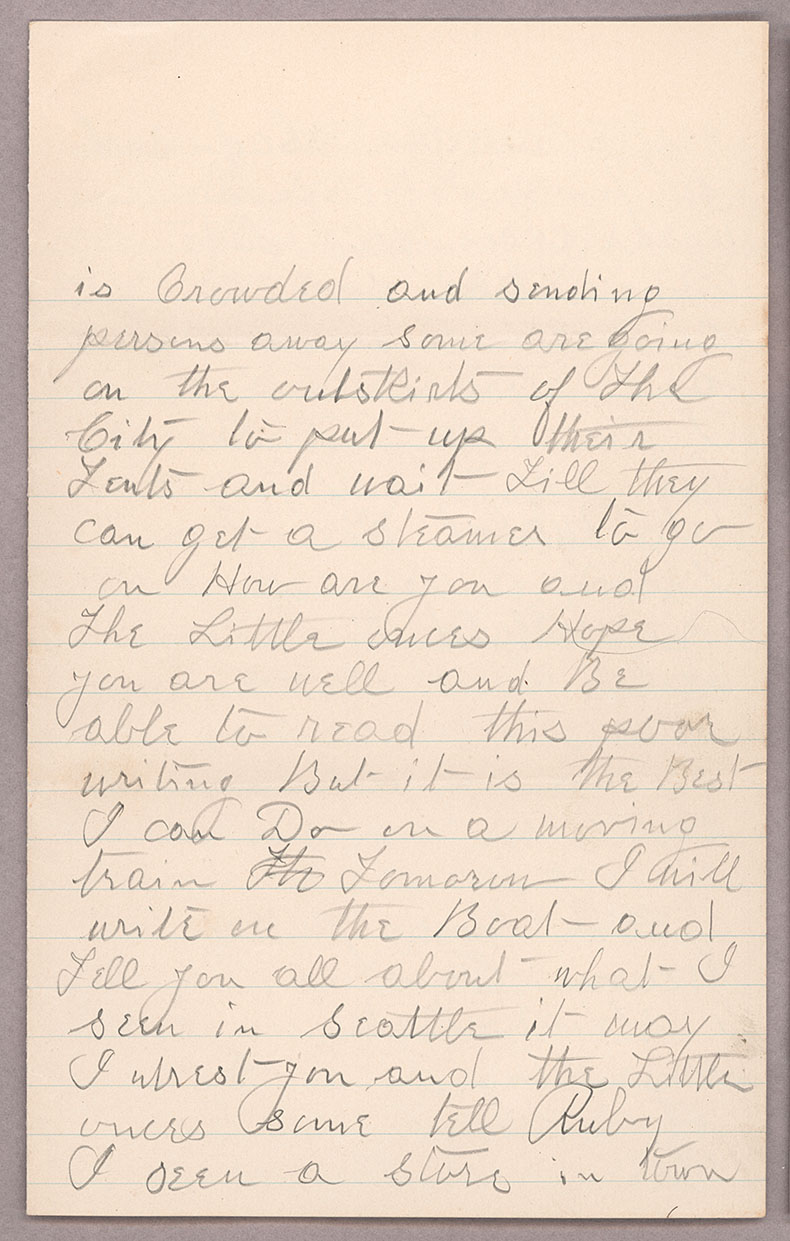 is Crowded and sending
persons away some are going
on the outskirts of The
City to put up their
Tents and wait Till they
can get a steamer to go
on How are you and
The Little onces Hope
you are well and Be
able to read this poor
writing But it is the Best
I can Do on a moving
train Tomorow I will
write on the Boat and
Tell you all about what I
seen in Seattle it may
Intrest you and the Little
onces some tell Ruby
I seen a store in town